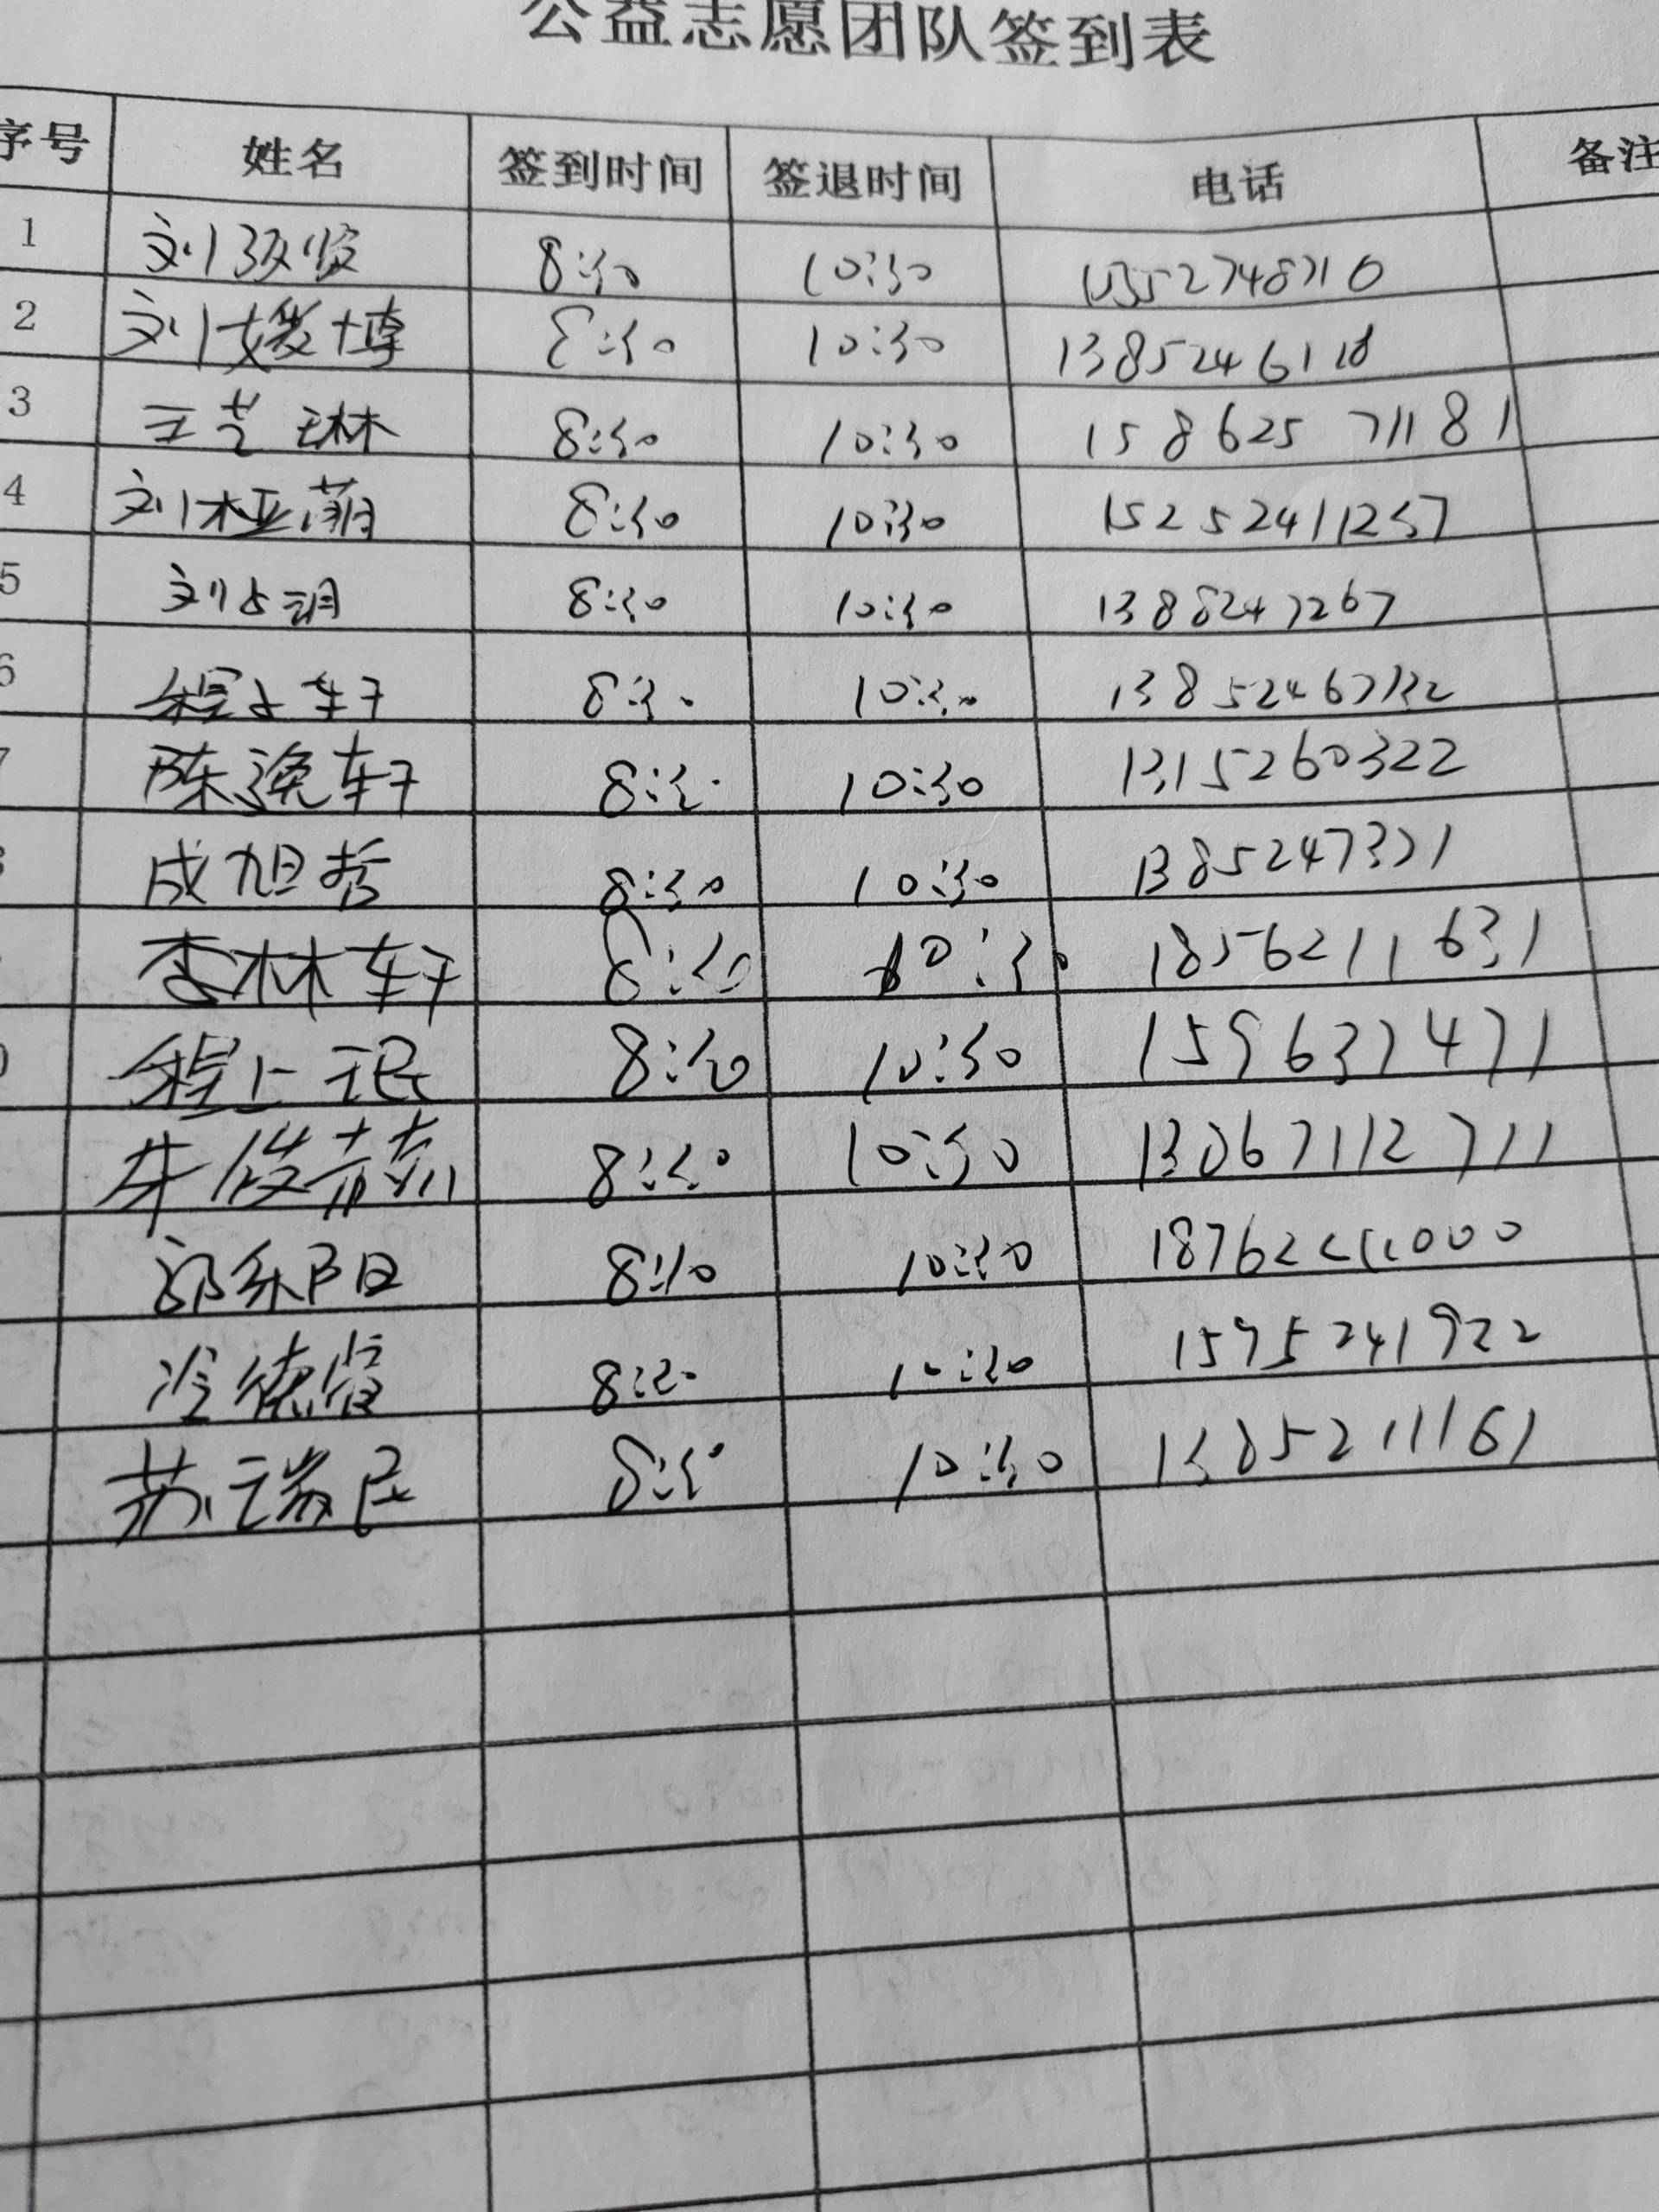 公益志愿团队签到表
序号 姓名 签到时间 签退时间 电话 备注
1 刘 8:30 10:30 15352748710
2 刘媛博 8:30 10:30 1385246118
3 王艺琳 8:30 10:30 15862571181
4 刘桠萌 8:30 10:30 15252411257
5 刘占 8:30 10:30 1388247267
6 程 轩 8:30 10:30 13852467132
7 陈逸轩 8:30 10:30 13115260322
成旭哲 8:30 10:30 1385247371
李林轩 8:30 10:30 1856211631
程上 8:30 10:30 159637471
朱俊 8:30 10:30 13067112711
阳 8:30 10:30
冷德 8:30 10:30 1595241922
苏瑞民 8:30 10:30 1385211161